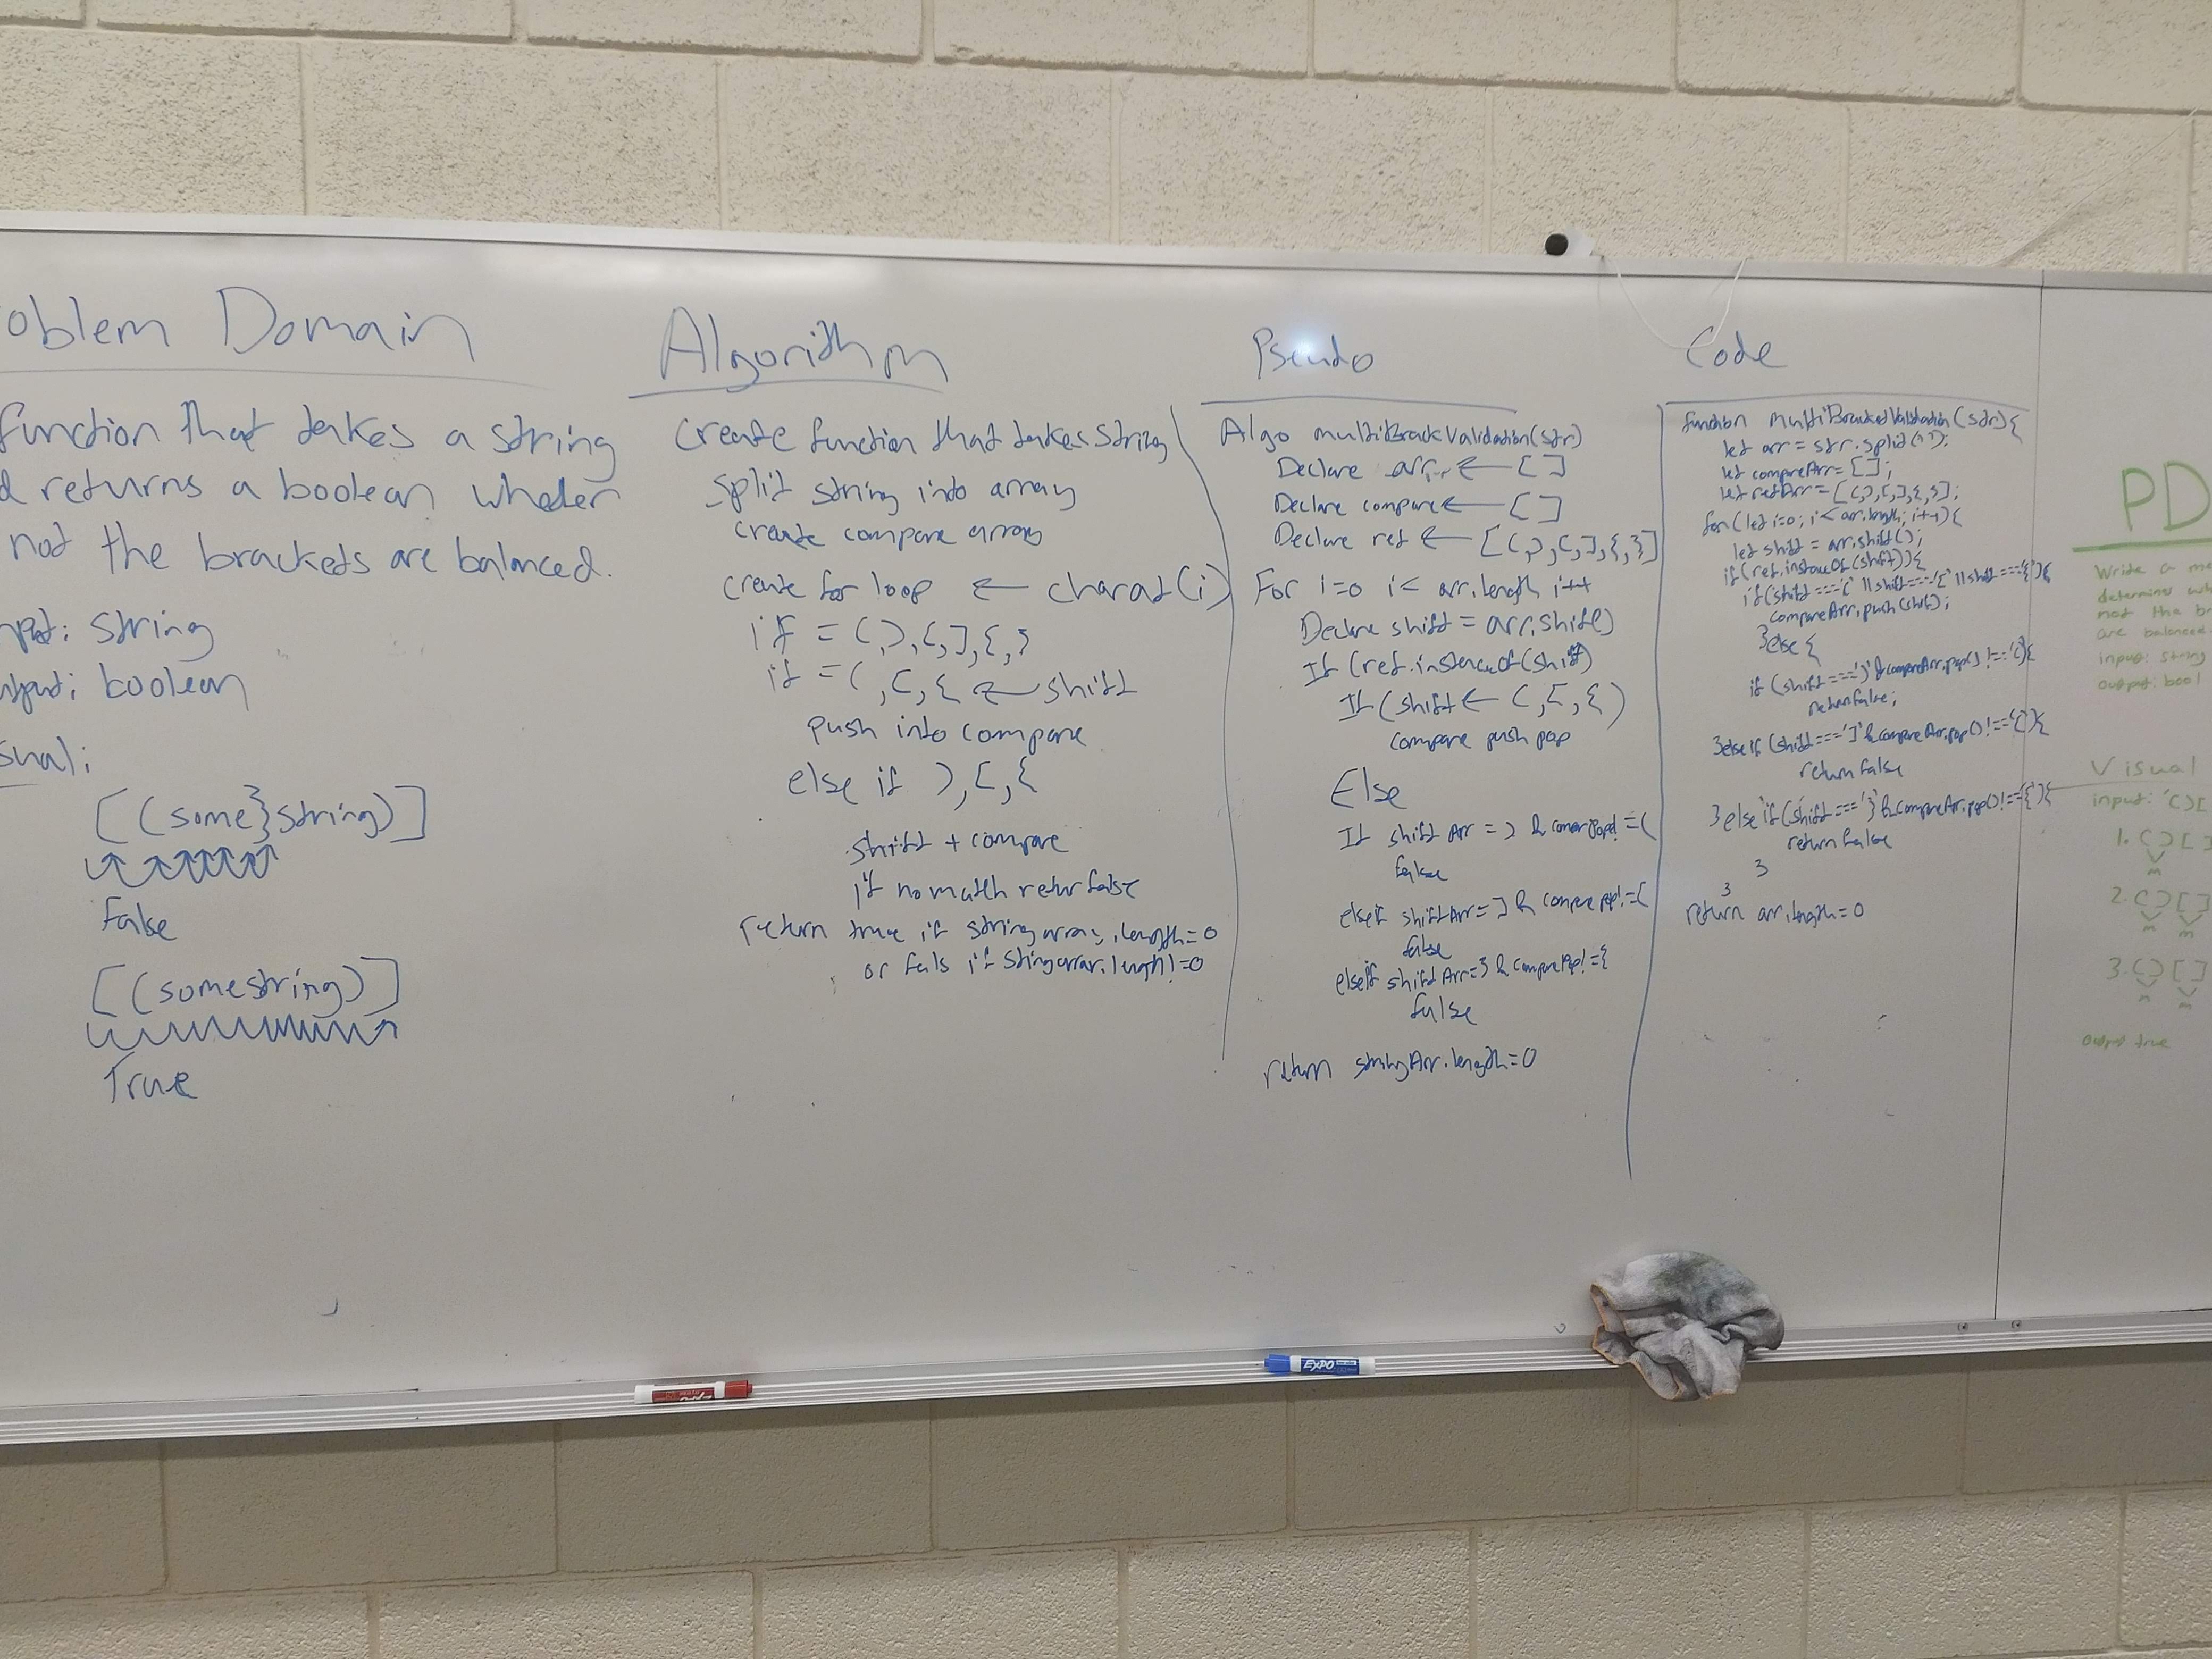 oblem Domain
function that takes a string
d returns a boolean whether
not the brackets are balanced.
nput: string
utput: boolean
sual:
[(some}string)]
False
[(somestring)]
True
Algorithm
create function that takes string
split string into array
create compare array
create for loop ← charat(i)
if = (,),[,],{,}
if = (,[,{ ← shift
push into compare
else if ),[,{
shift + compare
if no math retur false
return true if stringarray.length=0
or fals if Stingarrar.length!=0
Pseudo
Algo multiBrackValidation(str)
Declare arr ← []
Declare compare ← []
Declare ret ← [(,),[,],{,}]
For i=0 i< arr.length i++
Declare shift = arr.shift)
If (ret.instanceOf(shift)
If (shift ← (,[,{)
compare push pop
Else
If shift Arr = ) & compare pop! =(
false
elseif shiftArr=] & compare pop!=[
false
elseif shiftArr=} & comparePop!={
false
return stringArr.length=0
Code
function multiBracketValidation(str){
let arr = str.split('');
let compareArr=[];
let retArr=[(,),[,],{,}];
for(let i=0; i< arr.length; i++){
let shift = arr.shift();
if(ret.instanceOf(shift)){
if(shift==='(' || shift==='[' || shift==='{'){
compareArr.push(shift);
}else{
if (shift===')' & compareArr.pop() !=='('){
return false;
}else if (shift===']' & compareArr.pop()!=='['){
return false
}else if(shift==='}' & compareArr.pop()!=='{'){
return false
}
}
return arr.length=0
PD
Write a me
determine wh
not the b
are balanced
input: string
output: bool
Visual
input: '()[
1. ()[]
m
2. ()[]
m m
3. ()[]
output true
EXPO